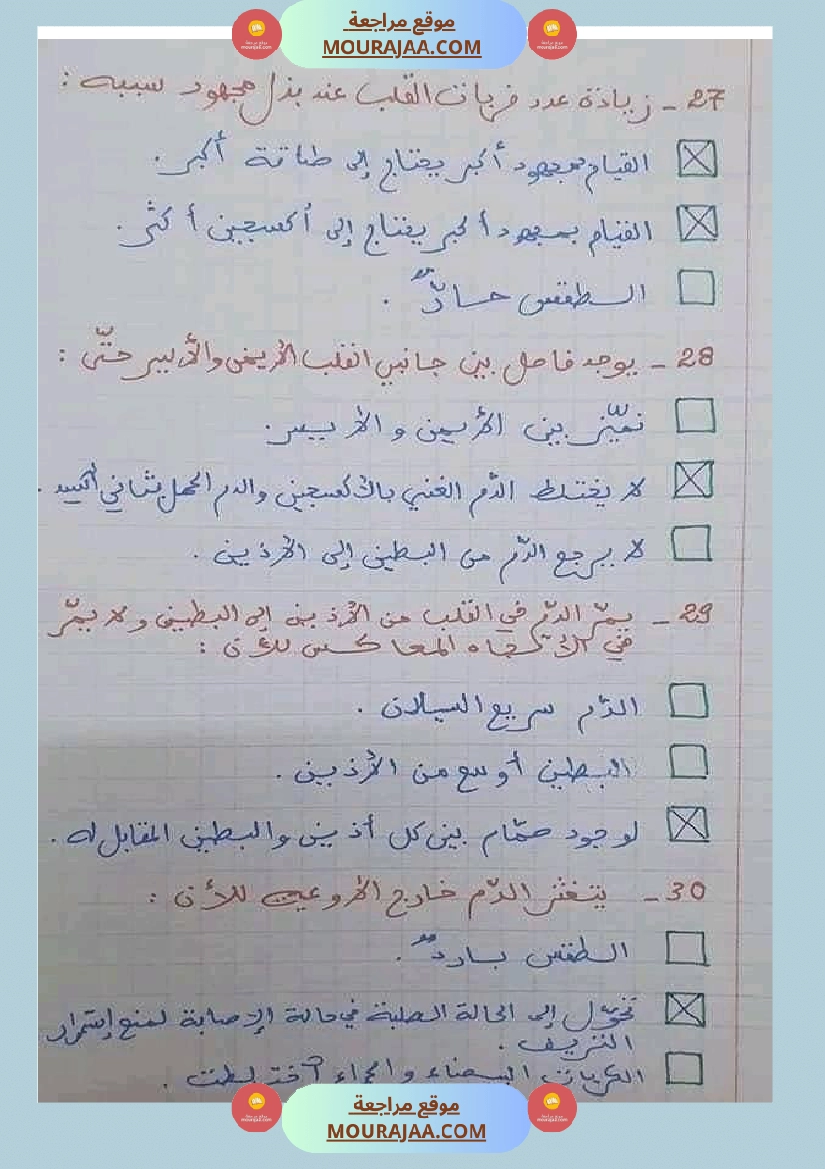 موقع مراجعة
MOURAJAA.COM
27 - زيادة عدد ضربات القلب عند بذل مجهود سببه :
القيام بمجهود أكبر يحتاج إلى طاقة أكبر .
القيام بمجهود أكبر يحتاج إلى أكسجين أكثر .
الطقس حارّ .
28 - يوجد فاصل بين جانبي القلب الأيمن والأيسر حتّى :
نميّز بين الأيمن والأيسر .
لا يختلط الدّم الغني بالأكسجين والدم المحمل بثاني أكسيد .
لا يرجع الدّم من البطين إلى الأذين .
29 - يمرّ الدّم في القلب من الأذين إلى البطين ولا يمرّ
في الاتجاه المعاكس لأن :
الدّم سريع السيلان .
البطين أوسع من الأذين .
لوجود صمّام بين كل أذين والبطين المقابل له .
30 - يتخثّر الدّم خارج الأوعية لأن :
الطقس بارد .
تحوّل إلى الحالة الصلبة في حالة الإصابة لمنع إستمرار
النزيف .
الكريات البيضاء والحمراء اختلطت .
موقع مراجعة
MOURAJAA.COM